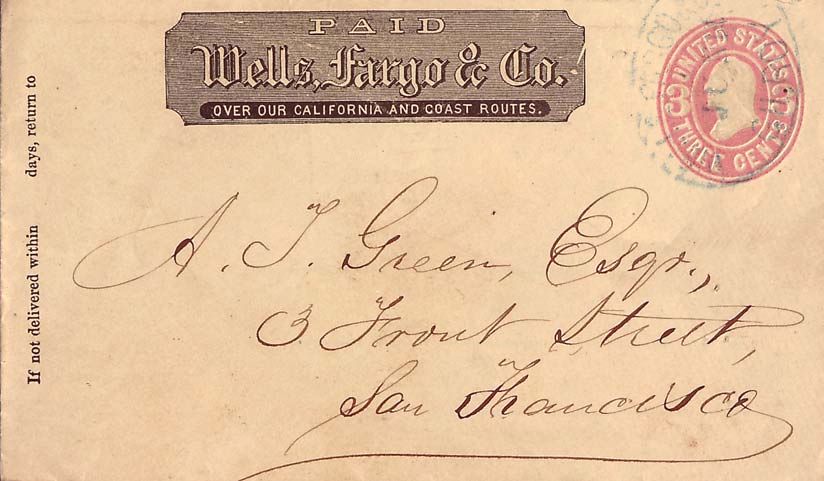 PAID
Wells, Fargo & Co.
OVER OUR CALIFORNIA AND COAST ROUTES.
UNITED STATES
THREE CENTS
3
3
If not delivered within days, return to
A. J. Green, Esqr.,
3 Front Street,
San Francisco